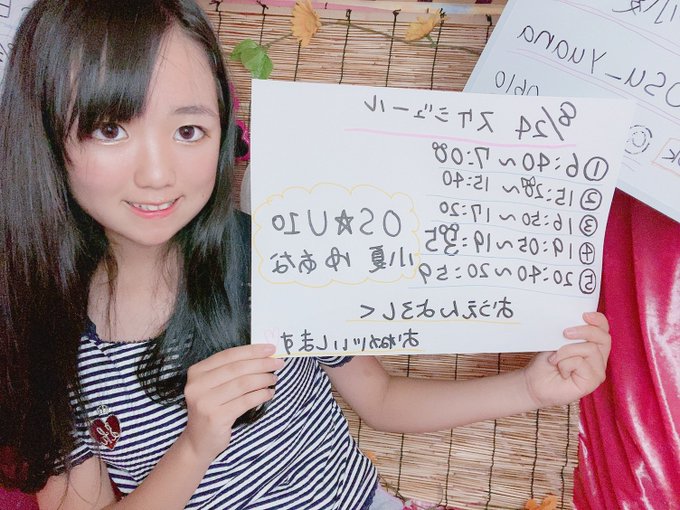 8/24 スケジュール
① 6:40〜7:00
② 15:20〜15:40
③ 16:50〜17:20
④ 19:05〜19:35
⑤ 20:40〜20:59
OS★U10
小夏 ゆあな
おうえんよろしく
おねがいします
小夏
osu_Yuana